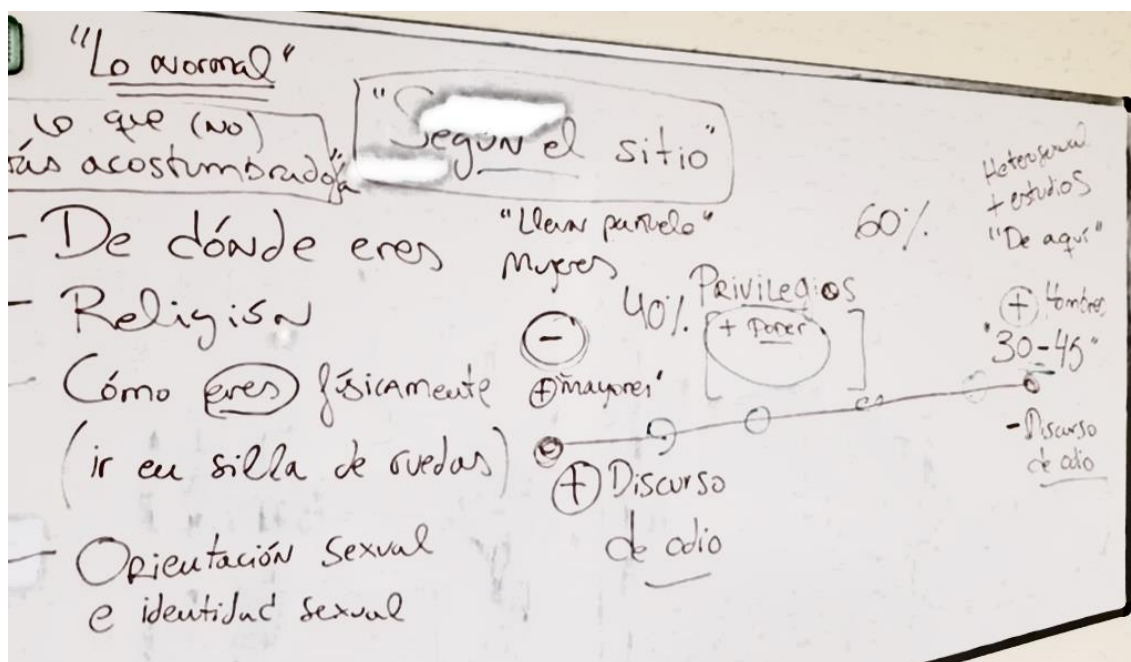 "Lo Normal"
lo que (NO)
más acostumbrado/a"
"Según el sitio"
- De dónde eres
- Religión
- Cómo eres físicamente
(ir en silla de ruedas)
- Orientación sexual
e identidad sexual
"Llevar pañuelo"
Mujeres
-
+ mayores"
40%
Privilegios
+ Poder
60%
Heterosexual
+ estudios
"De aquí"
+ Hombres
"30-45"
+ Discurso
de odio
- Discurso
de odio